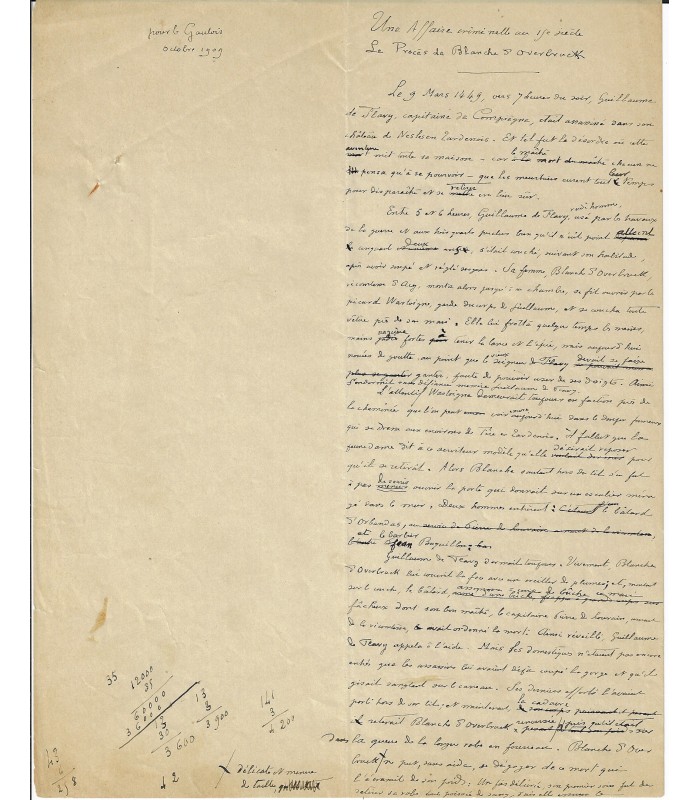 pour le Gaulois
octobre 1909
Une Affaire criminelle au 15e siècle
Le Procès de Blanche d'Overbreuck
Le 9 Mars 1449, vers 7 heures du soir, Guillaume
de Flavy, capitaine de Compiègne, était assassiné dans son
château de Nesles en Tardenois. Et tel fut le désordre où cette
aventure mit toute sa maison – car le maître mort chacun ne
pensa qu'à se pourvoir – que les meurtriers eurent tout leur temps
pour disparaître et se retirer en lieu sûr.
Entre 5 et 6 heures, Guillaume de Flavy, rude homme, usé par les travaux
de la guerre et aux trois quarts perclus bien qu'il n'eût point atteint
cinquante deux ans, s'était couché, suivant son habitude,
après avoir soupé et réglé ses gens. Sa femme, Blanche d'Overbreuck,
vicomtesse d'Acy, monta alors jusqu'à sa chambre, se fit ouvrir par le
picard Wastoigne, garde du corps de Guillaume, et se coucha toute
vêtue près de son mari. Elle lui frotta quelque temps les mains,
mains naguère fortes à tenir la lance et l'épée, mais aujourd'hui
nouées de goutte, au point que le vieux seigneur de Flavy devait se faire
ganter, faute de pouvoir user de ses doigts. Ainsi
s'endormit sans défiance messire Guillaume de Flavy.
L'attentif Wastoigne demeurait toujours en faction près de
la cheminée que l'on peut voir encore aujourd'hui dans le donjon fameux
qui se dresse aux environs de Fère en Tardenois. Il fallut que la
jeune dame dit à ce serviteur modèle qu'elle désirait reposer pour
qu'il se retirât. Alors Blanche sautant hors du lit s'en fut
à pas discrets ouvrir la porte qui donnait sur un escalier ména-
gé dans le mur. Deux hommes entrèrent : le bâtard
d'Orbandas,
et le barbier
Jean Boquillon
Guillaume de Flavy dormait toujours. Vivement, Blanche
d'Overbreuck lui couvrit le feu avec un oreiller de plumes, et, montant
sur le lit, le bâtard
fâcheux dont son bon maître, le capitaine Pierre de Louvain, amant
de la vicomtesse, avait ordonné la mort. Ainsi réveillé, Guillaume
de Flavy appela à l'aide. Mais les domestiques n'étaient pas encore
entrés que les assassins lui avaient déjà coupé la gorge et qu'il
gisait sanglant sur le carreau. Ses derniers efforts l'avaient
porté hors de son lit, et maintenant, le cadavre
retenait Blanche d'Overbreuck
dans la queue de la longue robe en fourreau. Blanche d'Over
breuck ne put, sans aide, se dégager de ce mort qui
l'écrasait de son poids. Une fois délivrée, son premier soin fut de
délicate et menue
de taille,
35
12000
35
60000
36000
13
30
3 600
13
3
3 900
141
3
4 20
43
6
258
42